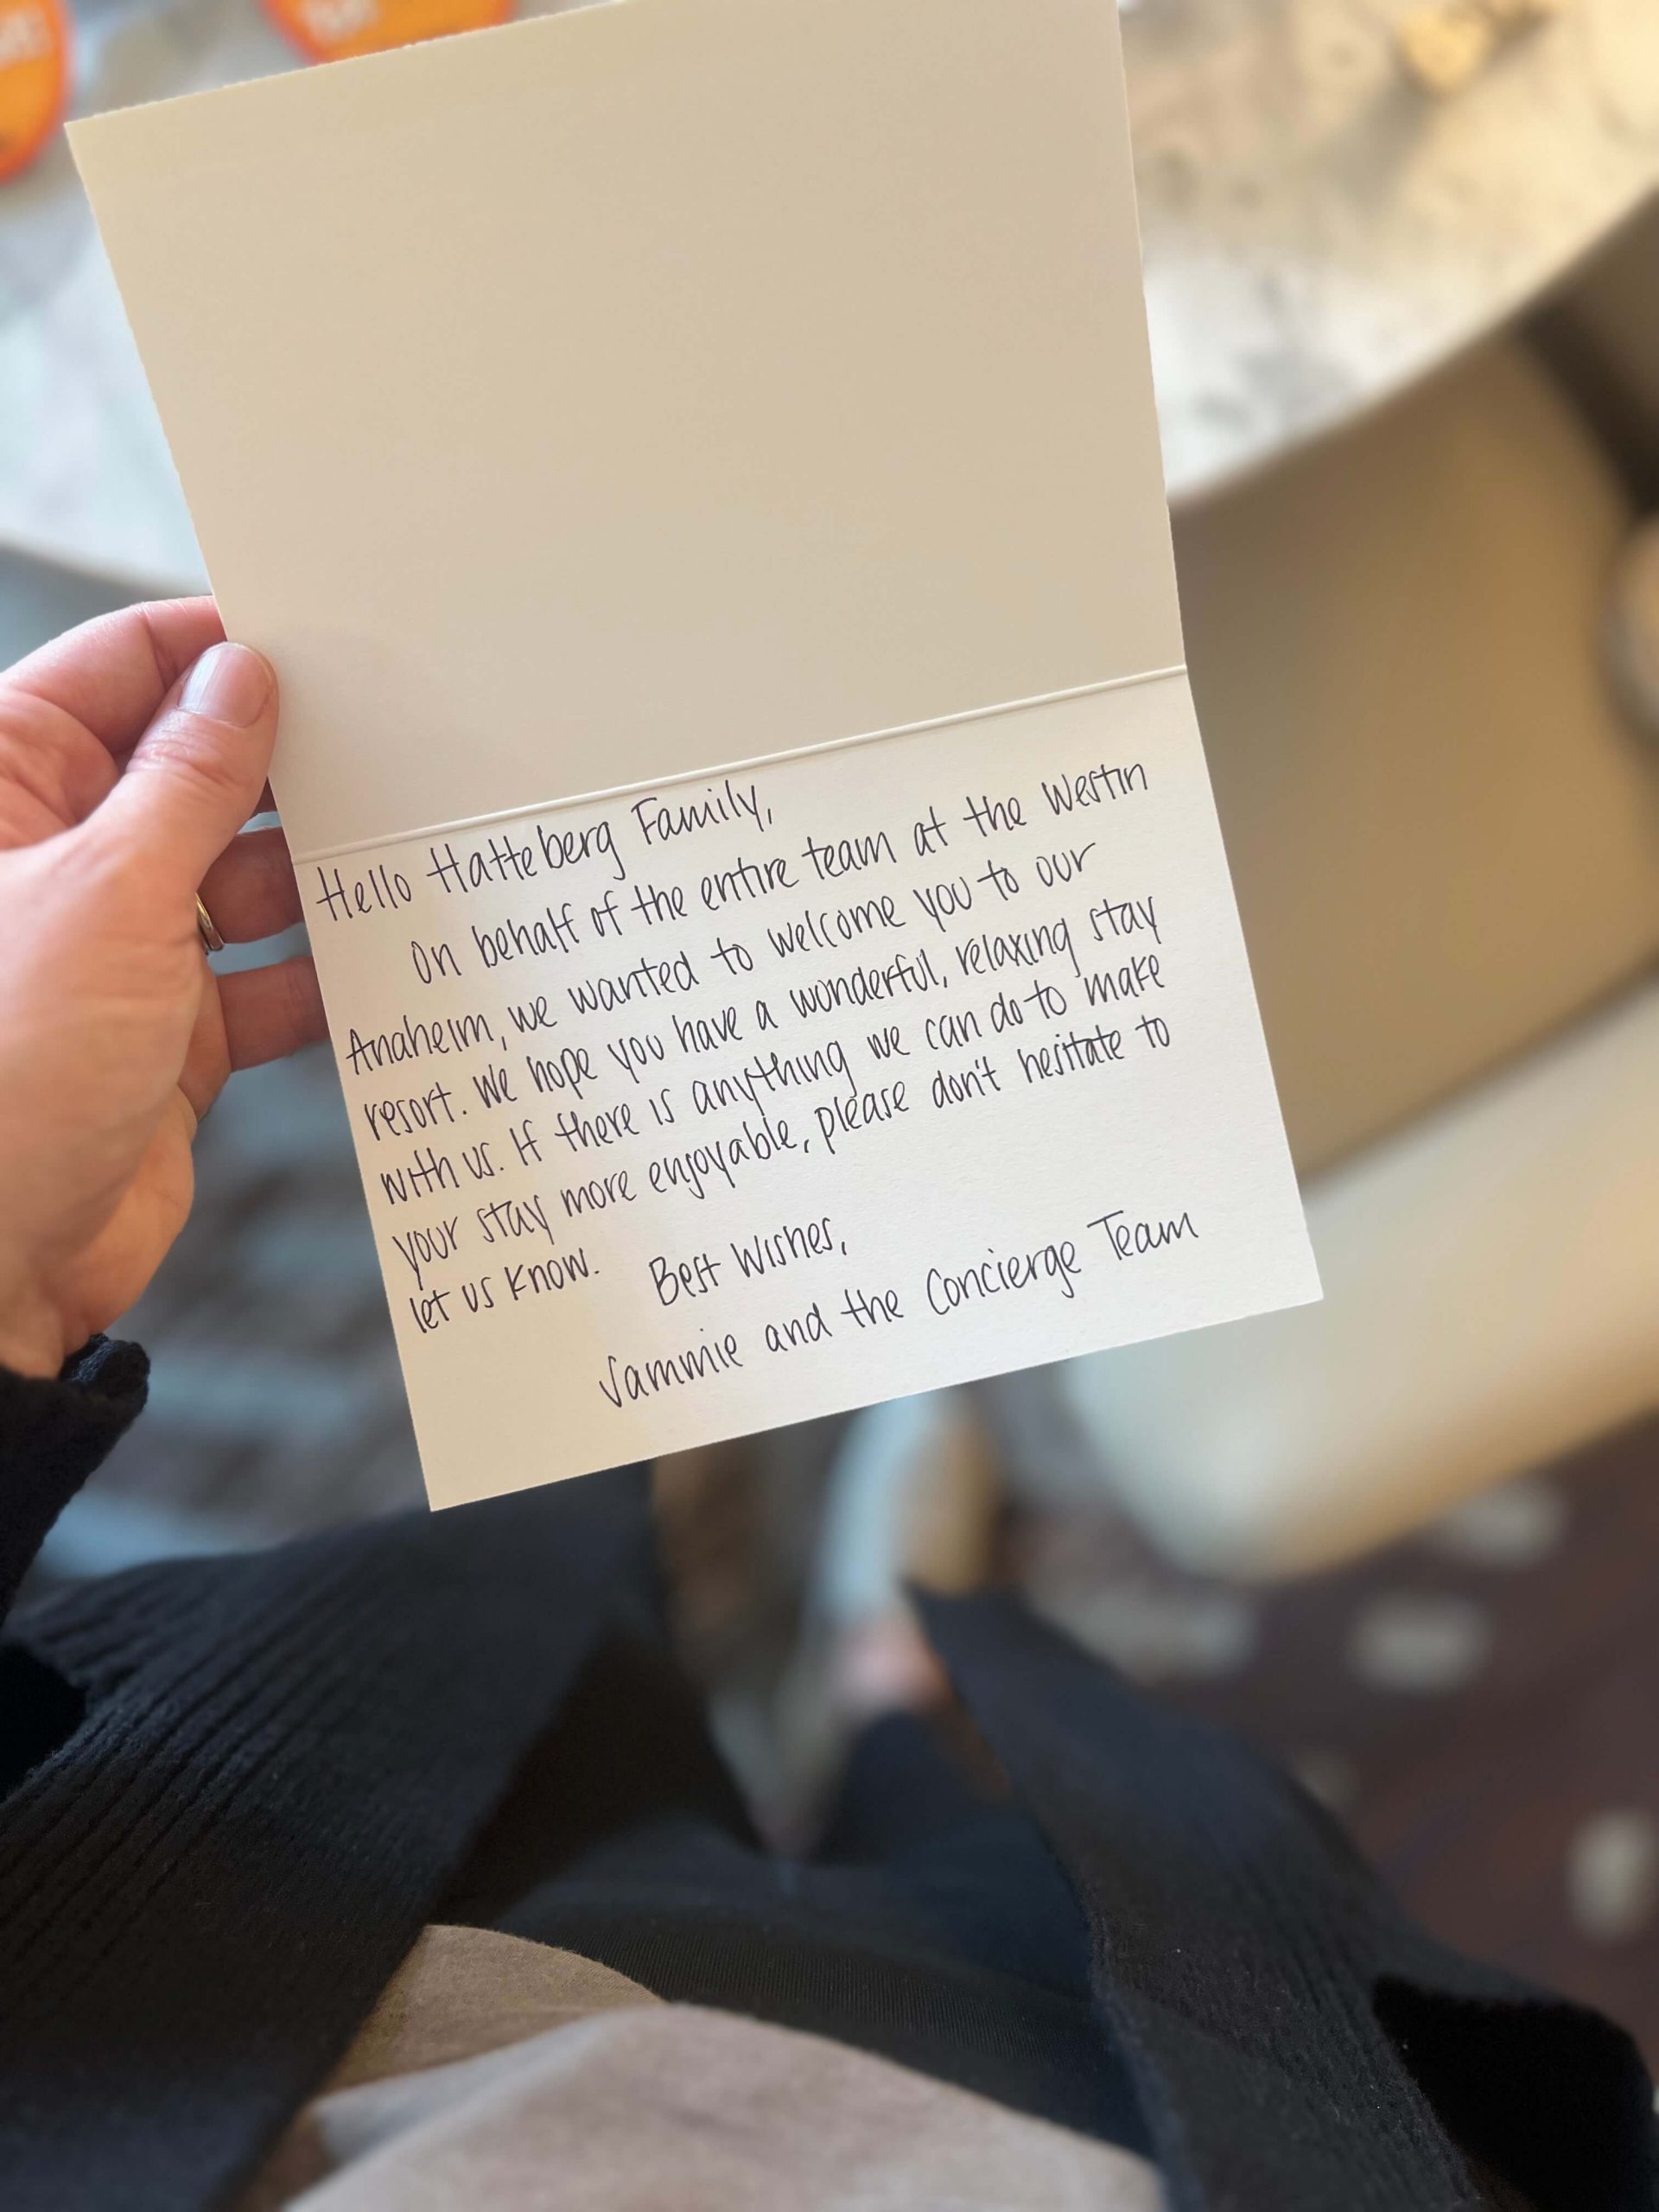 Hello Hatteberg Family,
On behalf of the entire team at the Westin
Anaheim, we wanted to welcome you to our
resort. We hope you have a wonderful, relaxing stay
with us. If there is anything we can do to make
your stay more enjoyable, please don't hesitate to
let us know.
Best Wishes,
Sammie and the Concierge Team